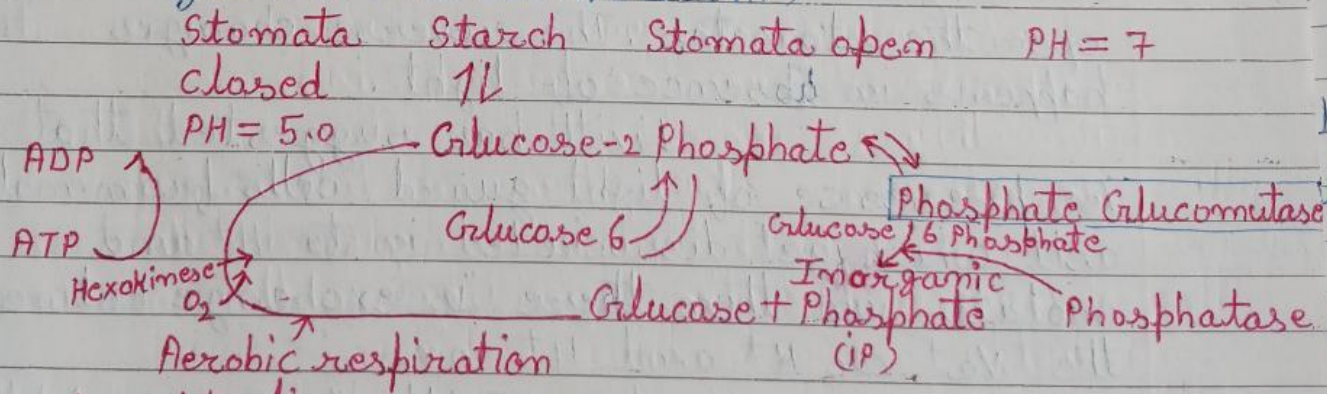 Stomata Starch Stomata open PH = 7
Closed 1L
PH = 5.0 Glucose-2 Phosphate
ADP
Phosphate Glucomutase
Glucose 6 Glucose 1 6 Phosphate
ATP
Hexokinese Inorganic
O2 Glucose + Phosphate Phosphatase
Aerobic respiration (iP)